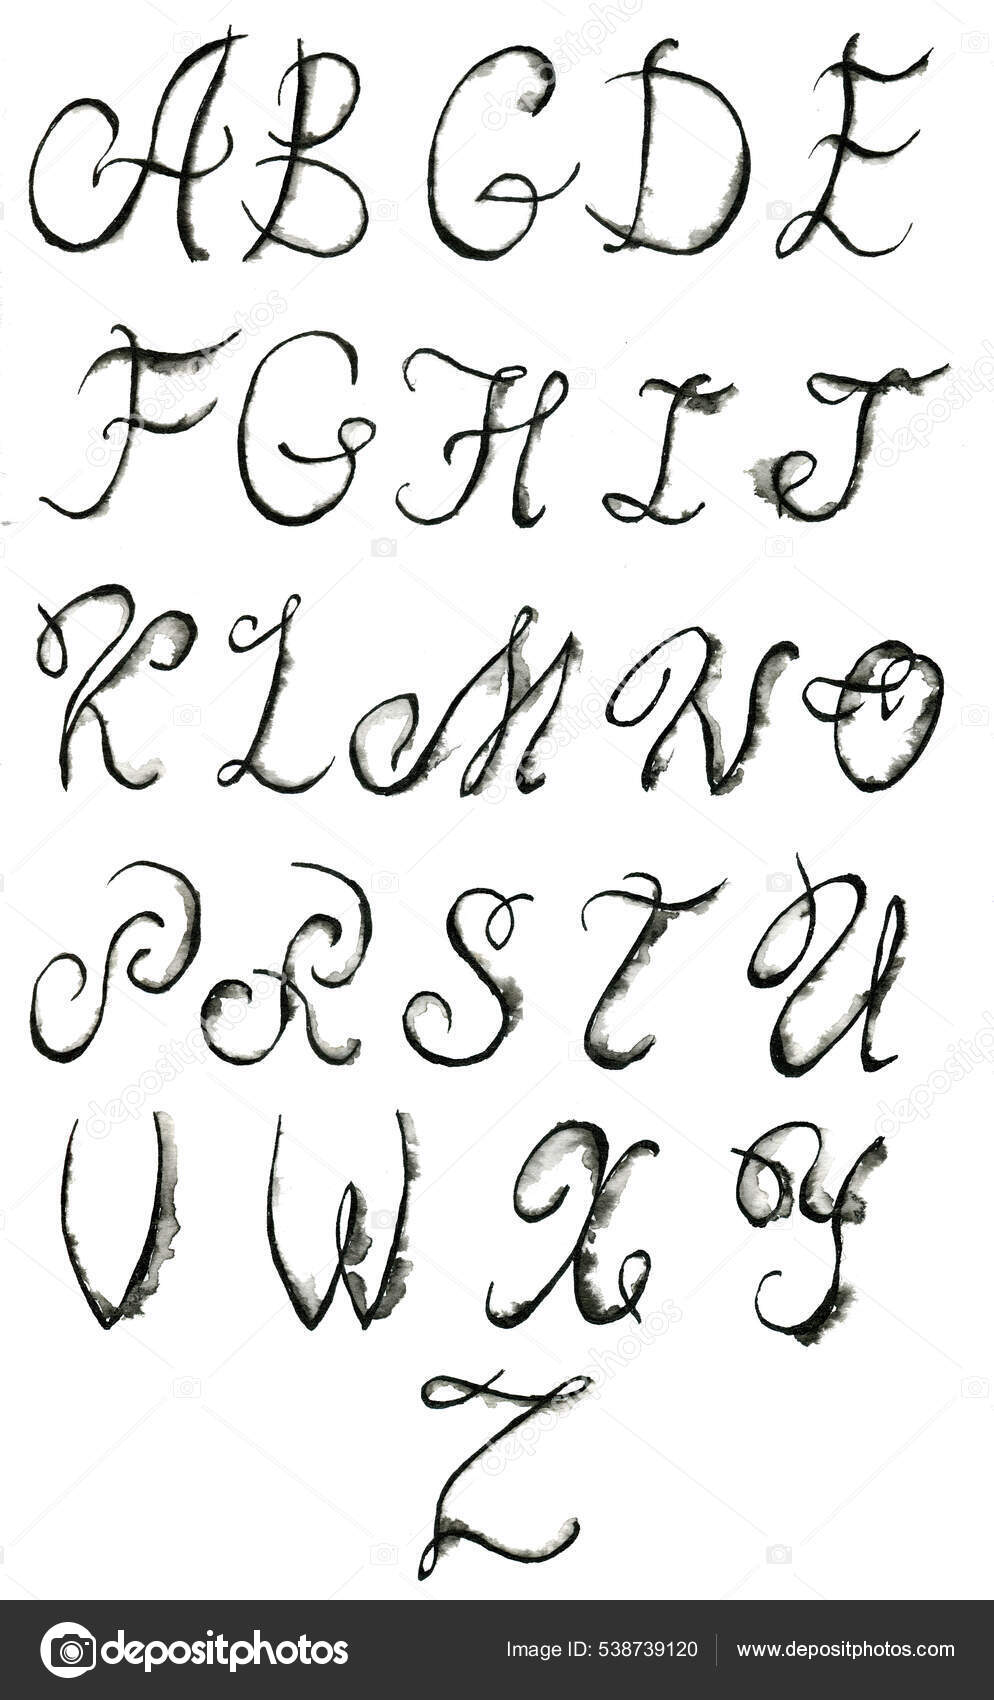 A B G D E
F G H I J
K L M N O
P R S T U
V W X Y Z
depositphotos
Image ID: 538739120
www.depositphotos.com